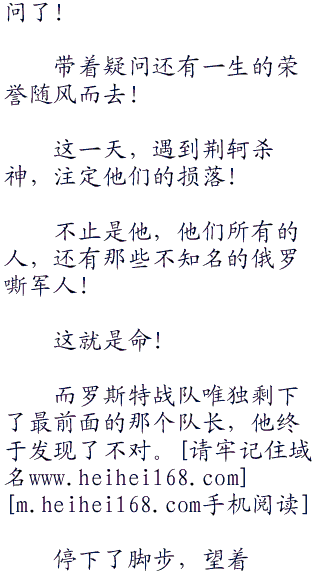 问了！
带着疑问还有一生的荣
誉随风而去！
这一天，遇到荆轲杀
神，注定他们的损落！
不止是他，他们所有的
人，还有那些不知名的俄罗
嘶军人！
这就是命！
而罗斯特战队唯独剩下
了最前面的那个队长，他终
于发现了不对。[请牢记住域
名www.heihei168.com]
[m.heihei168.com手机阅读]
停下了脚步，望着